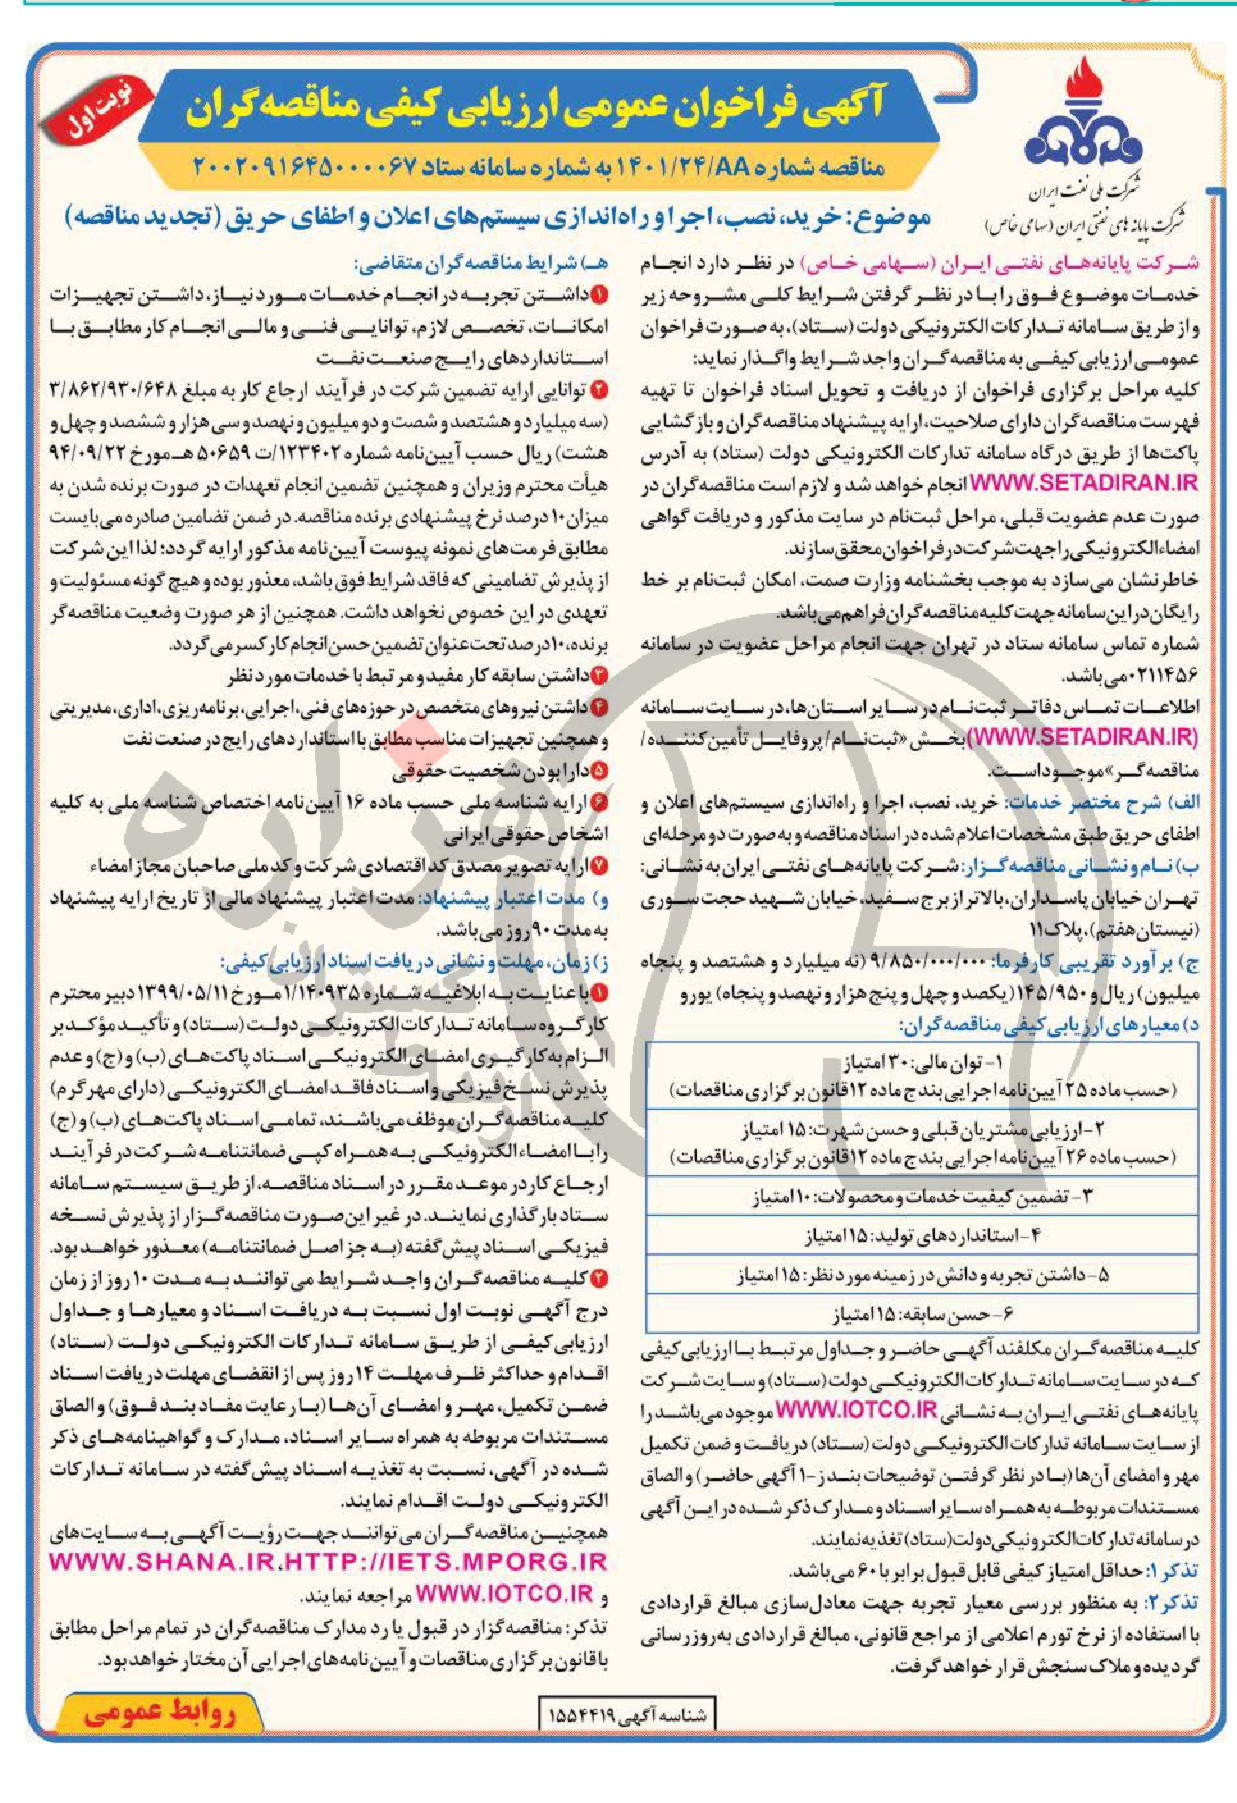 آگهی فراخوان عمومی ارزیابی کیفی مناقصه‌گران
نوبت اول
مناقصه شماره ۱۴۰۱/۲۴/AA به شماره سامانه ستاد ۲۰۰۲۰۹۱۶۴۵۰۰۰۰۶۷
شرکت ملی نفت ایران
شرکت پایانه های نفتی ایران (سهامی خاص)
موضوع: خرید، نصب، اجرا و راه‌اندازی سیستم‌های اعلان و اطفای حریق (تجدید مناقصه)
شرکت پایانه‌های نفتی ایران (سهامی خاص) در نظر دارد انجام
خدمات موضوع فوق را با در نظر گرفتن شرایط کلی مشروحه زیر
و از طریق سامانه تدارکات الکترونیکی دولت (ستاد)، به صورت فراخوان
عمومی ارزیابی کیفی به مناقصه‌گران واجد شرایط واگذار نماید:
کلیه مراحل برگزاری فراخوان از دریافت و تحویل اسناد فراخوان تا تهیه
فهرست مناقصه‌گران دارای صلاحیت، ارایه پیشنهاد مناقصه‌گران و بازگشایی
پاکت‌ها از طریق درگاه سامانه تدارکات الکترونیکی دولت (ستاد) به آدرس
WWW.SETADIRAN.IR انجام خواهد شد و لازم است مناقصه‌گران در
صورت عدم عضویت قبلی، مراحل ثبت‌نام در سایت مذکور و دریافت گواهی
امضاء الکترونیکی را جهت شرکت در فراخوان محقق سازند.
خاطرنشان می‌سازد به موجب بخشنامه وزارت صمت، امکان ثبت‌نام بر خط
رایگان در این سامانه جهت کلیه مناقصه‌گران فراهم می‌باشد.
شماره تماس سامانه ستاد در تهران جهت انجام مراحل عضویت در سامانه
۰۲۱۱۴۵۶ می باشد.
اطلاعات تماس دفاتر ثبت‌نام در سایر استان‌ها، در سایت سامانه
(WWW.SETADIRAN.IR) بخش «ثبت‌نام/پروفایل تأمین‌کننده/
مناقصه‌گر» موجود است.
الف) شرح مختصر خدمات: خرید، نصب، اجرا و راه‌اندازی سیستم‌های اعلان و
اطفای حریق طبق مشخصات اعلام شده در اسناد مناقصه و به صورت دو مرحله‌ای
ب) نام و نشانی مناقصه‌گزار: شرکت پایانه‌های نفتی ایران به نشانی:
تهران خیابان پاسداران، بالاتر از برج سفید، خیابان شهید حجت سوری
(نیستان هفتم)، پلاک ۱۱
ج) برآورد تقریبی کارفرما: ۹/۸۵۰/۰۰۰/۰۰۰ (نه میلیارد و هشتصد و پنجاه
میلیون) ریال و ۱۴۵/۹۵۰ (یکصد و چهل و پنج هزار و نهصد و پنجاه) یورو
د) معیارهای ارزیابی کیفی مناقصه‌گران:
۱- توان مالی: ۳۰ امتیاز
(حسب ماده ۲۵ آیین‌نامه اجرایی بند ج ماده ۱۲ قانون برگزاری مناقصات)
۲- ارزیابی مشتریان قبلی و حسن شهرت: ۱۵ امتیاز
(حسب ماده ۲۶ آیین‌نامه اجرایی بند ج ماده ۱۲ قانون برگزاری مناقصات)
۳- تضمین کیفیت خدمات و محصولات: ۱۰ امتیاز
۴- استانداردهای تولید: ۱۵ امتیاز
۵- داشتن تجربه و دانش در زمینه مورد نظر: ۱۵ امتیاز
۶- حسن سابقه: ۱۵ امتیاز
کلیه مناقصه‌گران مکلفند آگهی حاضر و جداول مرتبط با ارزیابی کیفی
که در سایت سامانه تدارکات الکترونیکی دولت (ستاد) و سایت شرکت
پایانه‌های نفتی ایران به نشانی WWW.IOTCO.IR موجود می‌باشد را
از سایت سامانه تدارکات الکترونیکی دولت (ستاد) دریافت و ضمن تکمیل
مهر و امضای آن‌ها (با در نظر گرفتن توضیحات بند ز-۱ آگهی حاضر) و الصاق
مستندات مربوطه به همراه سایر اسناد و مدارک ذکر شده در این آگهی
در سامانه تدارکات الکترونیکی دولت (ستاد) تغذیه نمایند.
تذکر ۱: حداقل امتیاز کیفی قابل قبول برابر با ۶۰ می باشد.
تذکر ۲: به منظور بررسی معیار تجربه جهت معادل‌سازی مبالغ قراردادی
با استفاده از نرخ تورم اعلامی از مراجع قانونی، مبالغ قراردادی به‌روزرسانی
گردیده و ملاک سنجش قرار خواهد گرفت.
هـ) شرایط مناقصه‌گران متقاضی:
۱ داشتن تجربه در انجام خدمات مورد نیاز، داشتن تجهیزات
امکانات، تخصص لازم، توانایی فنی و مالی انجام کار مطابق با
استانداردهای رایج صنعت نفت
۲ توانایی ارایه تضمین شرکت در فرآیند ارجاع کار به مبلغ ۳/۸۶۲/۹۳۰/۶۴۸
(سه میلیارد و هشتصد و شصت و دو میلیون و نهصد و سی هزار و ششصد و چهل و
هشت) ریال حسب آیین‌نامه شماره ۱۲۳۴۰۲/ت ۵۰۶۵۹ هـ مورخ ۹۴/۰۹/۲۲
هیأت محترم وزیران و همچنین تضمین انجام تعهدات در صورت برنده شدن به
میزان ۱۰ درصد نرخ پیشنهادی برنده مناقصه. در ضمن تضامین صادره می‌بایست
مطابق فرمت‌های نمونه پیوست آیین‌نامه مذکور ارایه گردد؛ لذا این شرکت
از پذیرش تضامینی که فاقد شرایط فوق باشد، معذور بوده و هیچ گونه مسئولیت و
تعهدی در این خصوص نخواهد داشت. همچنین از هر صورت وضعیت مناقصه‌گر
برنده، ۱۰ درصد تحت عنوان تضمین حسن انجام کار کسر می گردد.
۳ داشتن سابقه کار مفید و مرتبط با خدمات مورد نظر
۴ داشتن نیروهای متخصص در حوزه‌های فنی، اجرایی، برنامه‌ریزی، اداری، مدیریتی
و همچنین تجهیزات مناسب مطابق با استانداردهای رایج در صنعت نفت
۵ دارا بودن شخصیت حقوقی
۶ ارایه شناسه ملی حسب ماده ۱۶ آیین‌نامه اختصاص شناسه ملی به کلیه
اشخاص حقوقی ایرانی
۷ ارایه تصویر مصدق کد اقتصادی شرکت و کد ملی صاحبان مجاز امضاء
و) مدت اعتبار پیشنهاد: مدت اعتبار پیشنهاد مالی از تاریخ ارایه پیشنهاد
به مدت ۹۰ روز می باشد.
ز) زمان، مهلت و نشانی دریافت اسناد ارزیابی کیفی:
۱ با عنایت به ابلاغیه شماره ۱/۱۴۰۹۳۵ مورخ ۱۳۹۹/۰۵/۱۱ دبیر محترم
کارگروه سامانه تدارکات الکترونیکی دولت (ستاد) و تأکید مؤکد بر
الزام به کارگیری امضای الکترونیکی اسناد پاکت‌های (ب) و (ج) و عدم
پذیرش نسخ فیزیکی و اسناد فاقد امضای الکترونیکی (دارای مهر گرم)
کلیه مناقصه‌گران موظف می‌باشند، تمامی اسناد پاکت‌های (ب) و (ج)
را با امضاء الکترونیکی به همراه کپی ضمانتنامه شرکت در فرآیند
ارجاع کار در موعد مقرر در اسناد مناقصه، از طریق سیستم سامانه
ستاد بارگذاری نمایند. در غیر این صورت مناقصه‌گزار از پذیرش نسخه
فیزیکی اسناد پیش‌گفته (به جز اصل ضمانتنامه) معذور خواهد بود.
۲ کلیه مناقصه‌گران واجد شرایط می توانند به مدت ۱۰ روز از زمان
درج آگهی نوبت اول نسبت به دریافت اسناد و معیارها و جداول
ارزیابی کیفی از طریق سامانه تدارکات الکترونیکی دولت (ستاد)
اقدام و حداکثر ظرف مهلت ۱۴ روز پس از انقضای مهلت دریافت اسناد
ضمن تکمیل، مهر و امضای آن‌ها (با رعایت مفاد بند فوق) و الصاق
مستندات مربوطه به همراه سایر اسناد، مدارک و گواهینامه‌های ذکر
شده در آگهی، نسبت به تغذیه اسناد پیش‌گفته در سامانه تدارکات
الکترونیکی دولت اقدام نمایند.
همچنین مناقصه‌گران می‌توانند جهت رؤیت آگهی به سایت‌های
WWW.SHANA.IR، HTTP://IETS.MPORG.IR
و WWW.IOTCO.IR مراجعه نمایند.
تذکر: مناقصه‌گزار در قبول یا رد مدارک مناقصه‌گران در تمام مراحل مطابق
با قانون برگزاری مناقصات و آیین‌نامه‌های اجرایی آن مختار خواهد بود.
شناسه آگهی ۱۵۵۴۴۱۹
روابط عمومی
هزاره